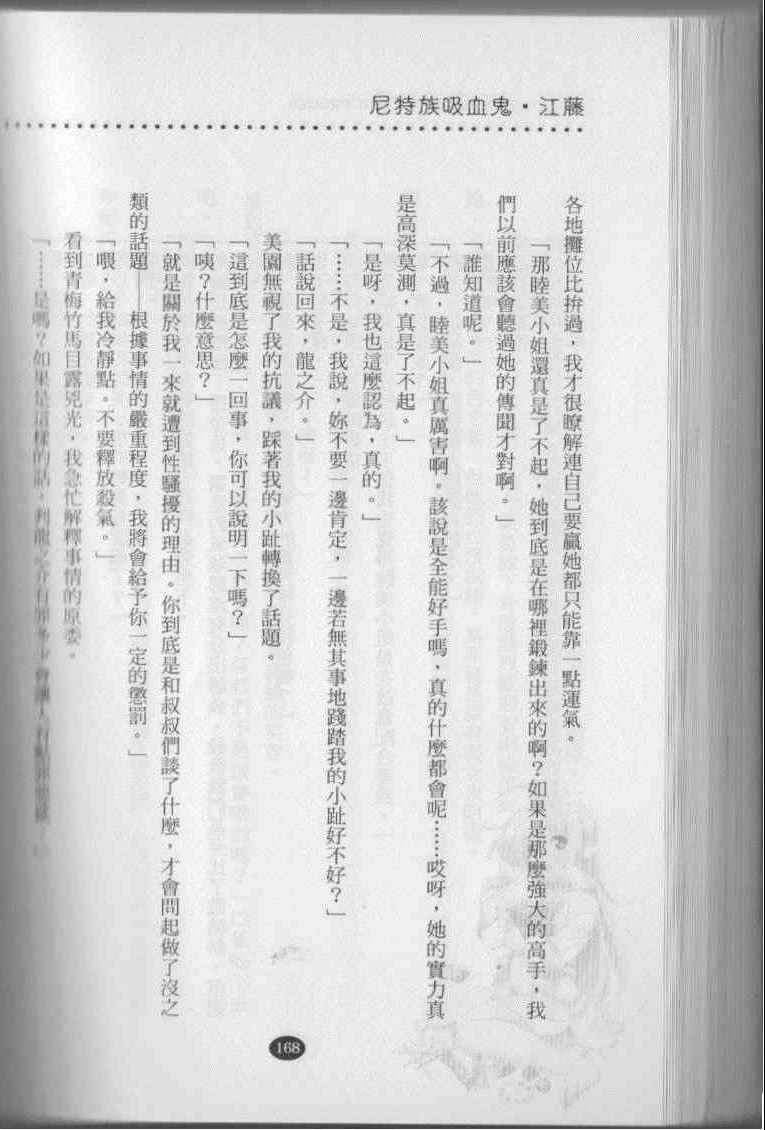 尼特族吸血鬼・江藤
各地攤位比拚過，我才很瞭解連自己要贏她都只能靠一點運氣。
「那睦美小姐還真是了不起，她到底是在哪裡鍛鍊出來的啊？如果是那麼強大的高手，我
們以前應該會聽過她的傳聞才對啊。」
「誰知道呢。」
「不過，睦美小姐真厲害啊。該說是全能好手嗎，真的什麼都會呢……哎呀，她的實力真
是高深莫測，真是了不起。」
「是呀，我也這麼認為，真的。」
「……不是，我說，妳不要一邊肯定，一邊若無其事地踐踏我的小趾好不好？」
「話說回來，龍之介。」
美園無視了我的抗議，踩著我的小趾轉換了話題。
「這到底是怎麼一回事，你可以說明一下嗎？」
「咦？什麼意思？」
「就是關於我一來就遭到性騷擾的理由。你到底是和叔叔們談了什麼，才會問起做了沒之
類的話題——根據事情的嚴重程度，我將會給予你一定的懲罰。」
「喂，給我冷靜點。不要釋放殺氣。」
看到青梅竹馬目露兇光，我急忙解釋事情的原委。
「……是嗎？如果是這樣的話，判龍之介有罪
168